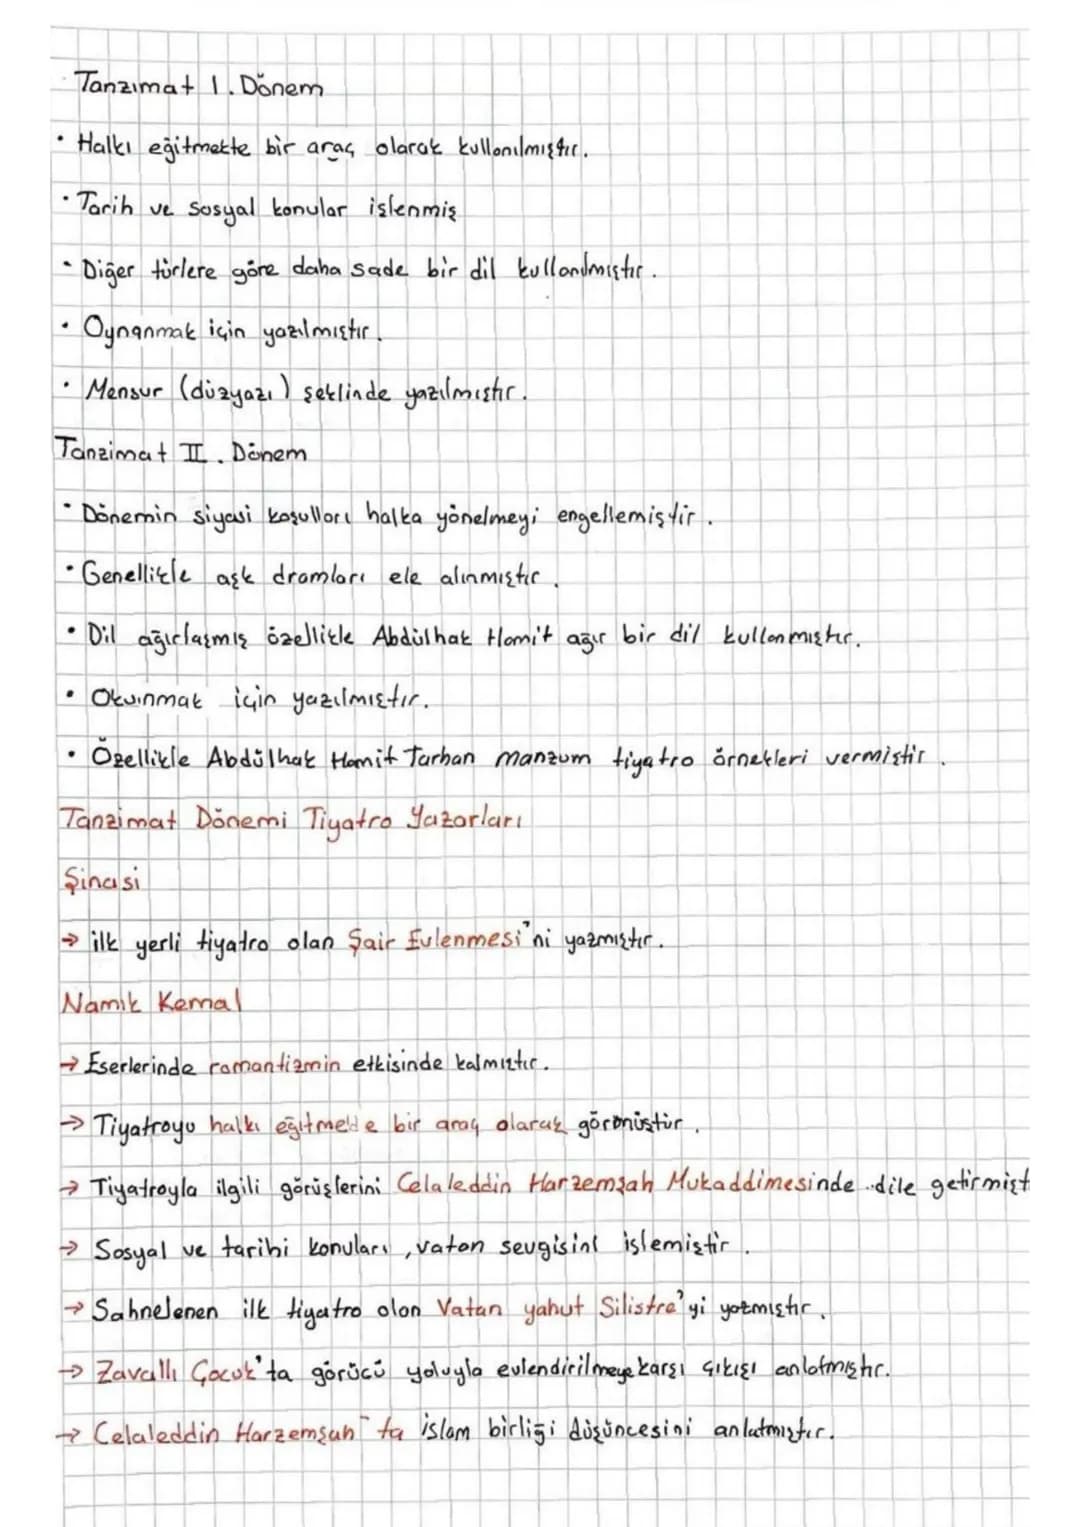 Tanzımat I. Dönem
• Halkı eğitmekte bir araç olarak kullanılmıştır.
• Tarih ve sosyal konular işlenmiş
• Diğer türlere göre daha sade bir dil kullanılmıştır.
• Oynanmak için yazılmıştır.
• Mensur (düzyazı) şeklinde yazılmıştır.
Tanzimat II. Dönem
• Dönemin siyasi koşulları halka yönelmeyi engellemiştir.
• Genellikle aşk dramları ele alınmıştır.
• Dil ağırlaşmış özellikle Abdülhak Hamit ağır bir dil kullanmıştır.
• Okuınmak için yazılmıştır.
• Özellikle Abdülhak Hamit Tarhan manzum tiyatro örnekleri vermiştir.
Tanzimat Dönemi Tiyatro Yazarları
Şinasi
→ ilk yerli tiyatro olan Şair Evlenmesi'ni yazmıştır.
Namık Kemal
→ Eserlerinde romantizmin etkisinde kalmıştır.
→ Tiyatroyu halkı eğitmede bir araç olarak görmüştür.
→ Tiyatroyla ilgili görüşlerini Celaleddin Harzemşah Mukaddimesinde dile getirmişt
→ Sosyal ve tarihi konuları, vatan sevgisini işlemiştir.
→ Sahnelenen ilk tiyatro olan Vatan yahut Silistre'yi yazmıştır.
→ Zavallı Çocuk'ta görücü yoluyla evlendirilmeye karşı çıkışı anlatmıştır.
→ Celaleddin Harzemşah'ta İslam birliği düşüncesini anlatmıştır.